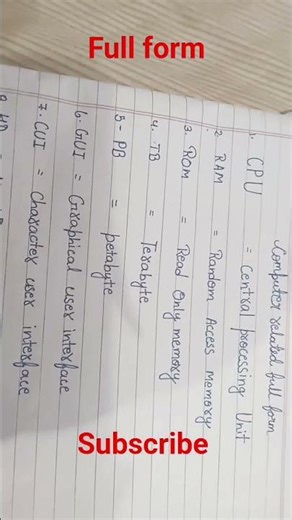 Full form
Computer related full form
1. CPU = Central processing Unit
2. RAM = Random Access memory
3. ROM = Read Only memory
4. TB = Terabyte
5- PB = petabyte
6. GUI = Graphical user interface
7. CUI = Character user interface
Subscribe